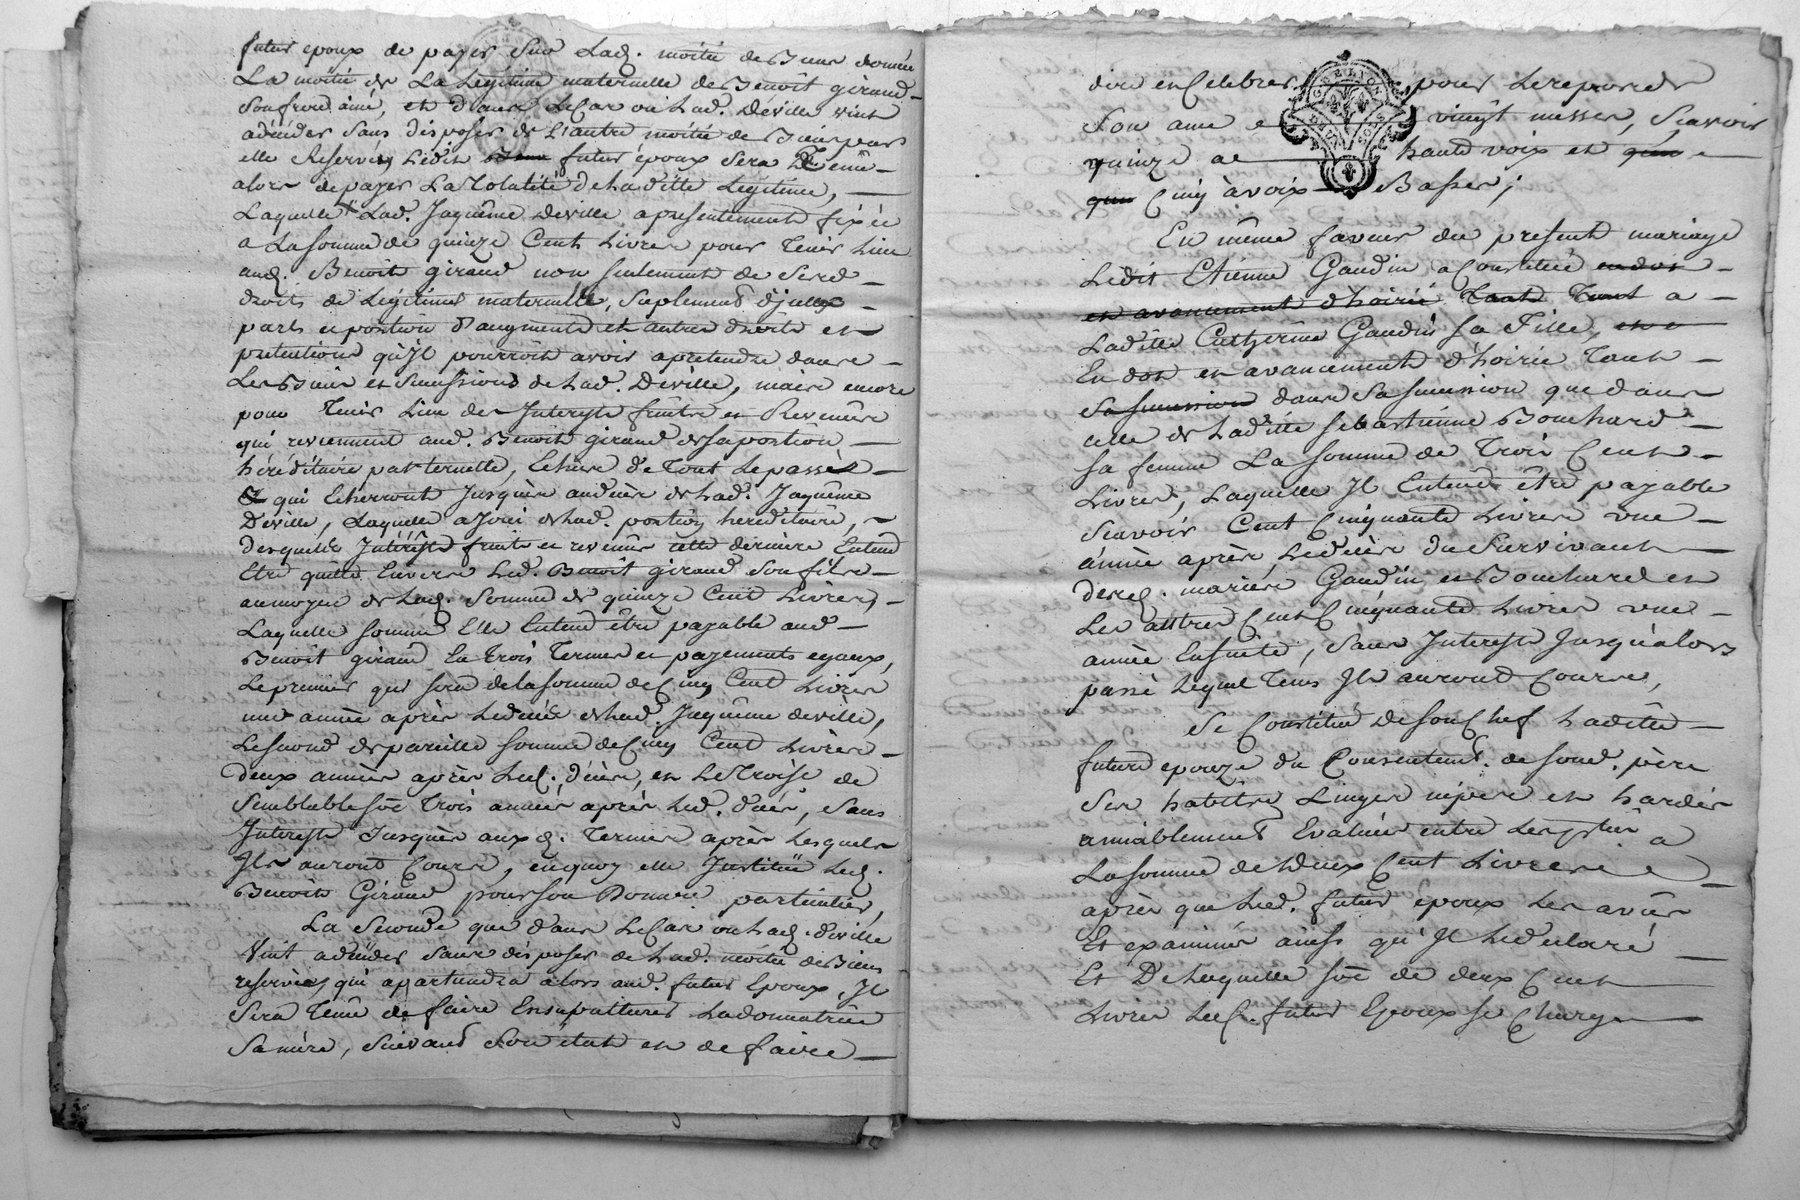 futur epoux de payer sur Lad. moitié de Biens donnée
La moitié de La Legitime maternelle de Benoit giraud
Son frere ainé, et dans Le Cas ou Lad. Deville vint
adécéder sans disposer de L'autre moitié de Biens par
elle Reservée, Ledit futur époux Sera Tenu
alors de payer La Totalité de Ladite Legitime,
Laquelle Lad. Jaquême Deville a presentement fixée
a La somme de quinze Cent Livres pour Tenir Lieu
aud. Benoit giraud non seulement de Sesd.
droits de Légitime maternelle, suplement d'jcelle
parts et portion d'augment et autres droits et
pretentions qu'Jl pourroit avoir apretendre dans
Les Biens et Succession de Lad. Deville, mais encore
pour Tenir Lieu des Jnterests fruits et Revenus
qui reviennent aud. Benoit giraud de sa portion
héréditaire paternelle, Echus de Tout Le passé
et qui Echerront Jusques au décès de Lad. Jaquême
Deville, Laquelle a Joui de Lad. portion hereditaire,
desquels Jntérêts fruits et revenus cette derniere Entend
Etre quitte Envers Led. Benoit giraud Son fils
au moyen de Lad. Somme de quinze Cent Livres,
Laquelle somme Elle Entend être payable aud.
Benoit giraud En Trois Termes et payements egaux,
Le premier qui sera de la somme de Cinq Cent Livres
une année après Le décés de Lad. Jaquême deville,
Le second de pareille somme de Cinq Cent Livres
deux années après Led. décès, et Le Troise de
Semblable sõe Trois années après Led. décés, Sans
Jnterests Jusques auxd. Termes après Lesquels
Jls auront Cours, enquoy elle Jnstitue Led.
Benoit Giraud pour son Donnaire particulier,
La Seconde que dans Le Cas ou Lad. deville
Vint adécéder sans disposer de Lad. moitié de Biens
reservée, qui apartiendra alors aud. futur Epoux, Jl
Sera Tenu de faire Ensepulturer La donnatrice
Sa mère, Suivant Son état et de faire
dire et Celebrer pour Le repos de
Son ame vingt messes, Scavoir
quinze a haute voix et
Cinq à voix Basse;
En même faveur du présent mariage
Ledit Etienne Gaudin a Constitué en dot
en avancement d'hoirie Tant Tant a
Ladite Catherine Gaudin Sa Fille,
En dot en avancement d'hoirie Tant
Sa succession dans Sa succession que dans
celle de Ladite sebastienne Bouchard
sa femme La somme de Trois Cent
Livres, Laquelle Jl Entend être payable
Scavoir Cent Cinquante Livres une
année après Le décès du Survivant
desd. mariés Gaudin et Bouchard et
Les autres Cent Cinquante Livres une
année Ensuite, Sans Jnterests Jusqu'alors
passé Lequel Tems Jls auront Cours,
Se Constitue de son Chef Ladite
future epouze du Consentemt. de sond. père
Ses habits, Linges nipes et hardes
amiablement Evalués entre Les pties a
La somme de Deux Cent Livres
après que Led. futur epoux Les a vûs
Et examinés ainsi qu'Jl Le declare
Et De Laquelle sõe de deux Cent
Livres Led. futur Epoux se Charge